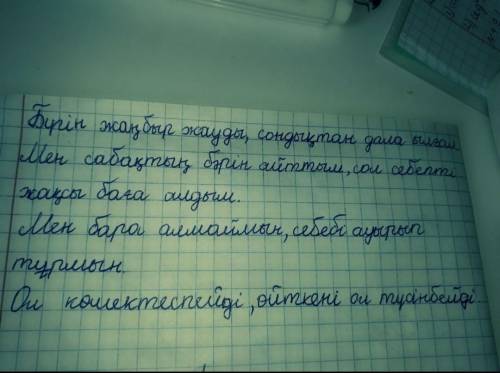 Бүгін жаңбыр жауды, сондықтан дала ылғал
Мен сабақтың бәрін айттым, сол себепті
жақсы баға алдым.
Мен бара алмаймын, себебі ауырып
тұрмын.
Ол көмектеспейді, өйткені ол түсінбейді.